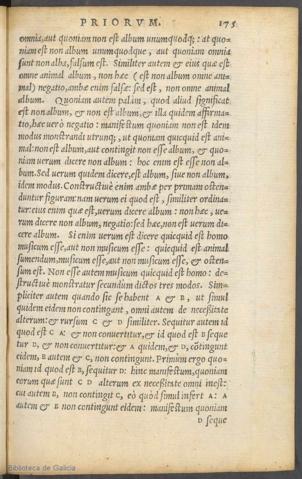 PRIORVM. 175
omnia, aut quoniam non est album unumquodq;: at quo-
niam est non album unumquodque, aut quoniam omnia
sunt non alba, falsum est. Similiter autem & eius quæ est
omne animal album, non hæc (est non album omne ani-
mal) negatio, ambæ enim falsæ: sed est, non omne animal
album. Quoniam autem palàm, quod aliud significat
est non album, & non est album, & illa quidem affirma-
tio, hæc uerò negatio: manifestum quoniam non est idem
modus monstrandi utrunq;, ut quoniam quicquid est ani-
mal: non est album, aut contingit non esse album, & quo-
niam uerum dicere non album: hoc enim est esse non al-
bum. Sed uerum quidem dicere, est album, siue non album,
idem modus. Constructiuè enim ambæ per primam osten-
duntur figuram: nam uerum ei quod est, similiter ordina-
tur: eius enim quæ est, uerum dicere album: non hæc, ue-
rum dicere non album, negatio: sed hæc, non est uerum di-
cere album. Si enim uerum est dicere quicquid est homo
musicum esse, aut non musicum esse: quicquid est animal
sumendum, musicum esse, aut non musicum esse, & osten-
sum est. Non esse autem musicum quicquid est homo: de-
structiuè monstratur secundum dictos tres modos. Sim-
pliciter autem quando sic se habent A & B, ut simul
quidem eidem non contingant, omni autem de necessitate
alterum: & rursum C & D similiter. Sequitur autem id
quod est C A: & non conuertitur, & id quod est B seque
tur D, & non conuertitur: & A quidem, & D, cōtingunt
eidem, B autem & C, non contingunt. Primùm ergo quo-
niam id quod est B, sequitur D: hinc manifestum, quoniam
eorum quæ sunt C D alterum ex necessitate omni inest:
cui autem B, non contingit C, eò quòd simul infert A: A
autem & B non contingunt eidem: manifestum quoniam
D seque
Biblioteca de Galicia